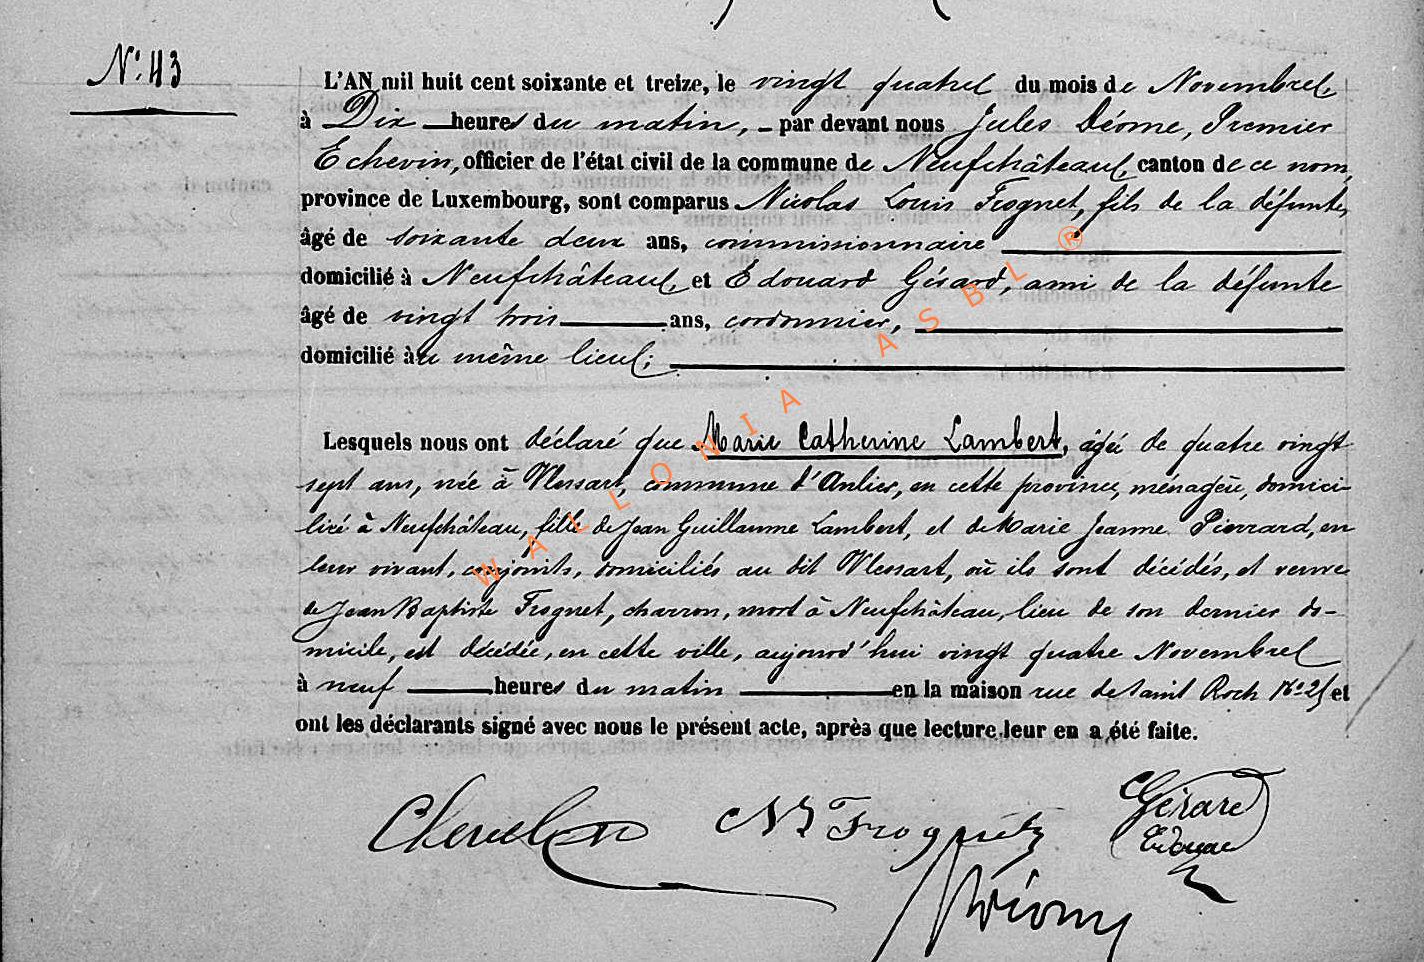 N° 43
L'AN mil huit cent soixante et treize, le vingt quatre du mois de Novembre,
à Dix heures du matin, par devant nous Jules Déome, Premier
Echevin, officier de l'état civil de la commune de Neufchâteau, canton de ce nom,
province de Luxembourg, sont comparus Nicolas Louis Frognet, fils de la défunte,
âgé de soixante deux ans, commissionnaire
domicilié à Neufchâteau, et Edouard Gérard, ami de la défunte
âgé de vingt trois ans, cordonnier,
domicilié au même lieu;
Lesquels nous ont déclaré que Marie Catherine Lambert, âgée de quatre vingt
sept ans, née à Vlessart, commune d'Anlier, en cette province, ménagère, domici-
liée à Neufchâteau, fille de Jean Guillaume Lambert, et de Marie Jeanne Pierrard, en
leur vivant, conjoints, domiciliés au dit Vlessart, où ils sont décédés, et veuve
de Jean Baptiste Frognet, charron, mort à Neufchâteau, lieu de son dernier do-
micile, est décédée, en cette ville, aujourd'hui vingt quatre Novembre
à neuf heures du matin en la maison rue de Saint Roch N° 25 et
ont les déclarants signé avec nous le présent acte, après que lecture leur en a été faite.
Gérard
Edouard
WALLONIA ASBL ®